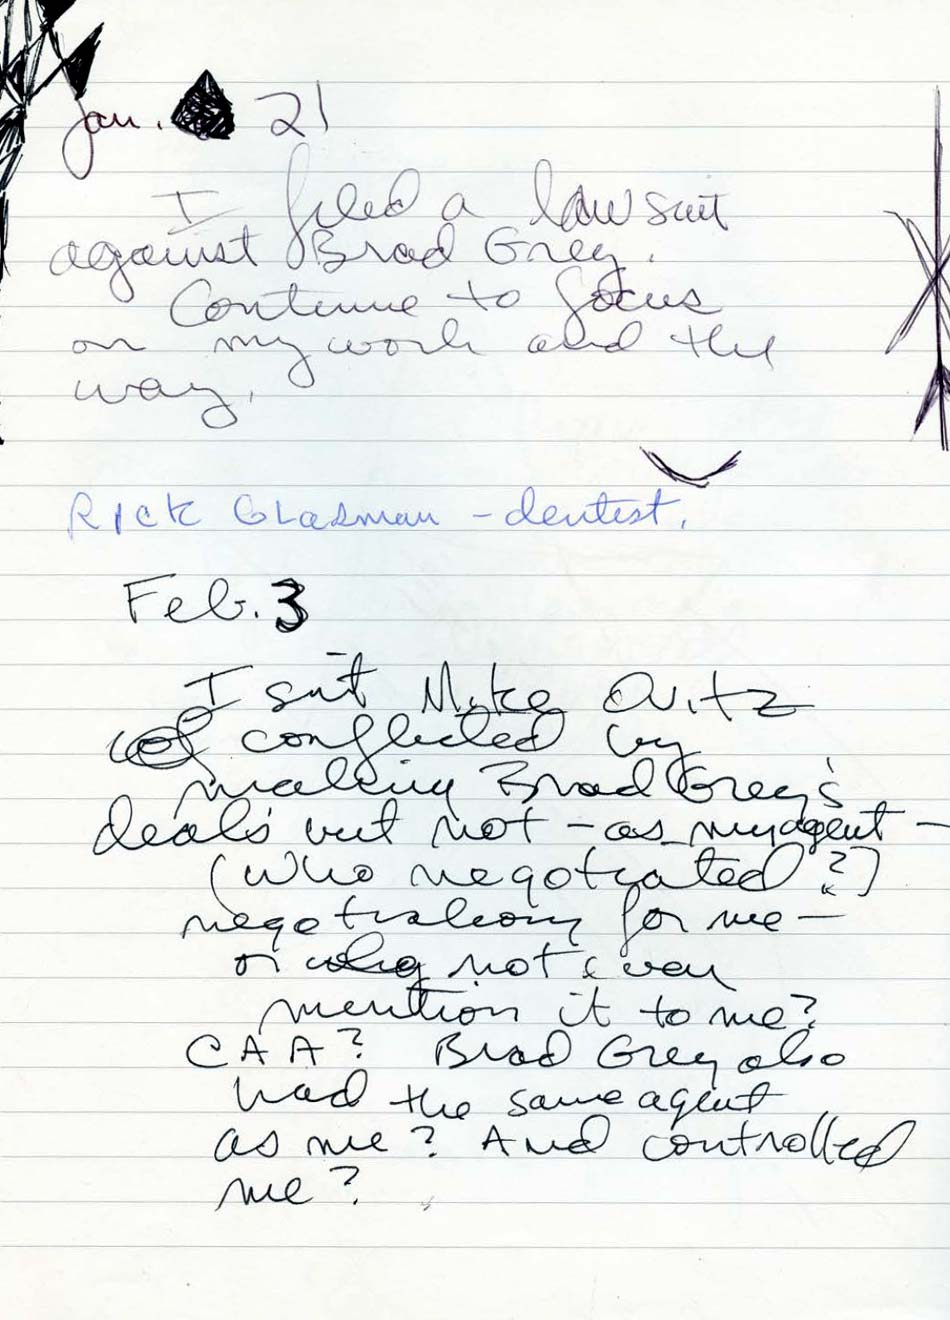 Jan. 21
I filed a lawsuit
against Brad Grey.
Continue to focus
on my work and the
way.
Rick Glasman - dentist.
Feb. 3
Isn't Mike Ovitz
conflicted by
making Brad Grey's
deals but not - as my agent -
(who negotiated?)
negotiations for me -
or why not even
mention it to me?
CAA? Brad Grey also
had the same agent
as me? And controlled
me?